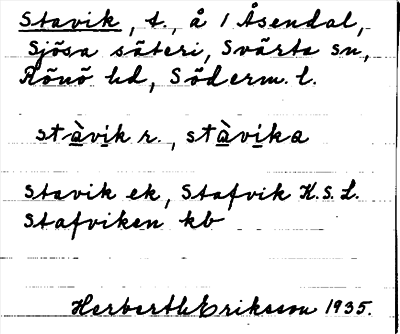 Stavik, t., å 1 Åsendal,
Sjösa säteri, Svärta sn,
Rönö hd, Söderm. l.
stàvik r., stàvika
Stavik ek, Stafvik H.S.L.
Stafviken kb
Herbert Eriksson 1935.